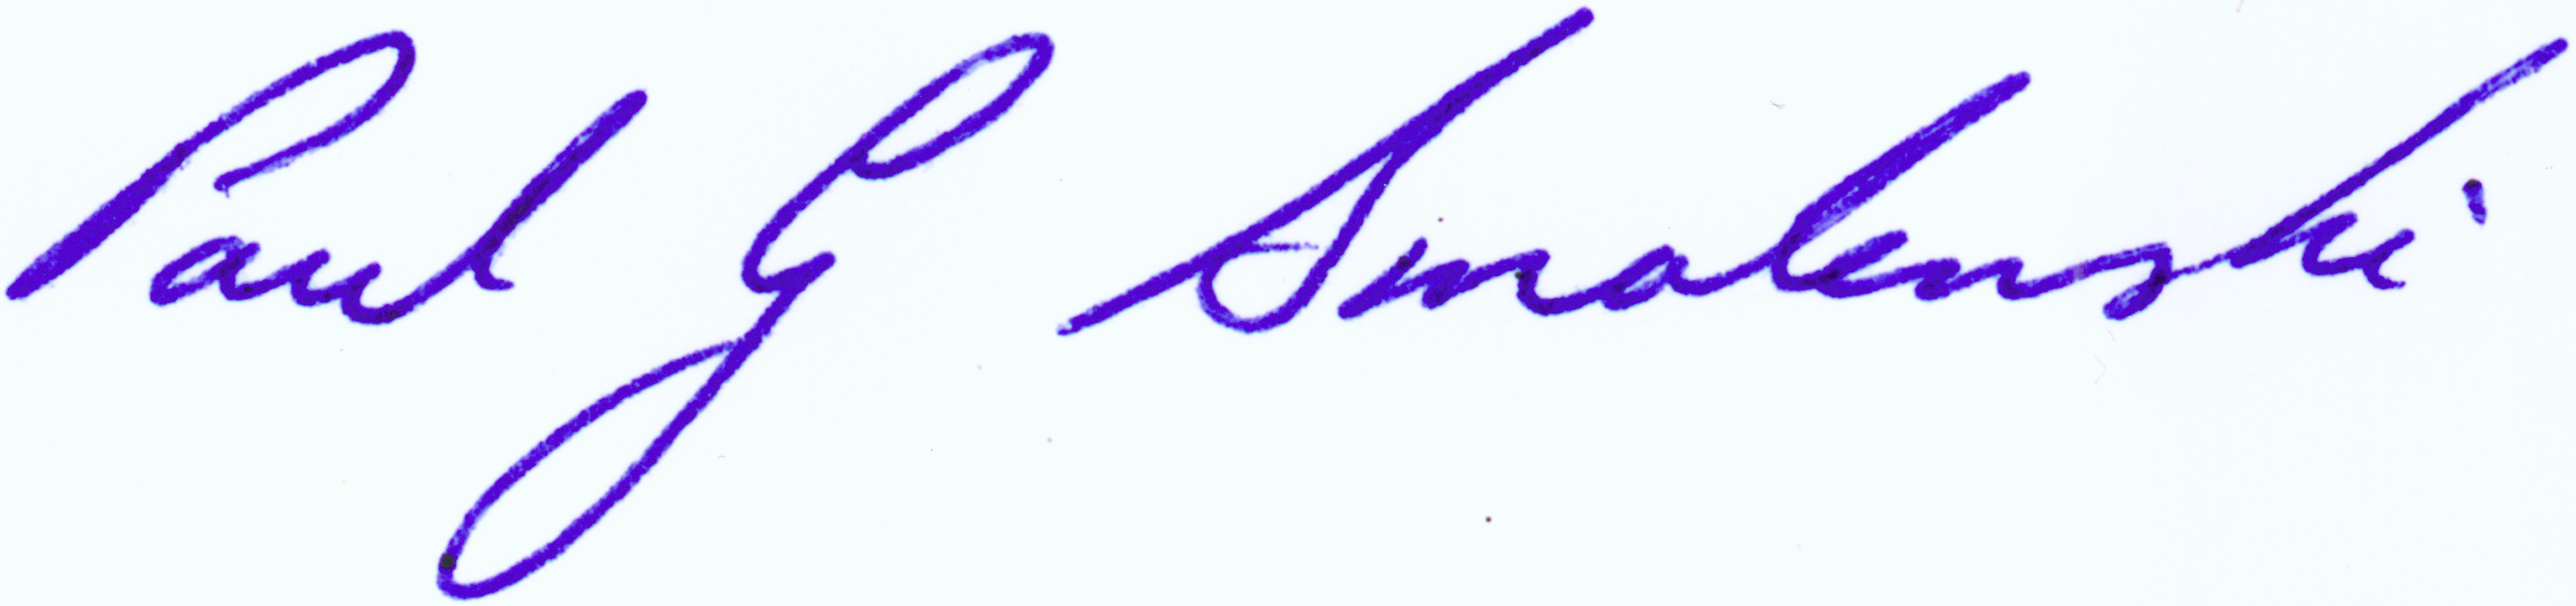 Paul G Smalenski